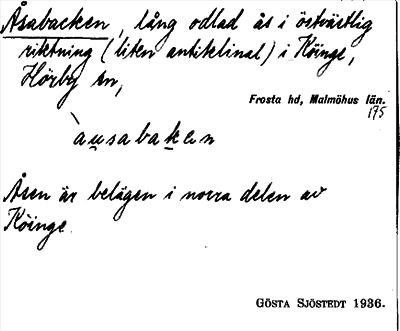 Åsabacken, lång odlad ås i östvästlig
riktning (liten antiklinal) i Köinge,
Hörby sn,
Frosta hd, Malmöhus län.
175
`ausabaken
Åsen är belägen i norra delen av
Köinge.
GÖSTA SJÖSTEDT 1936.